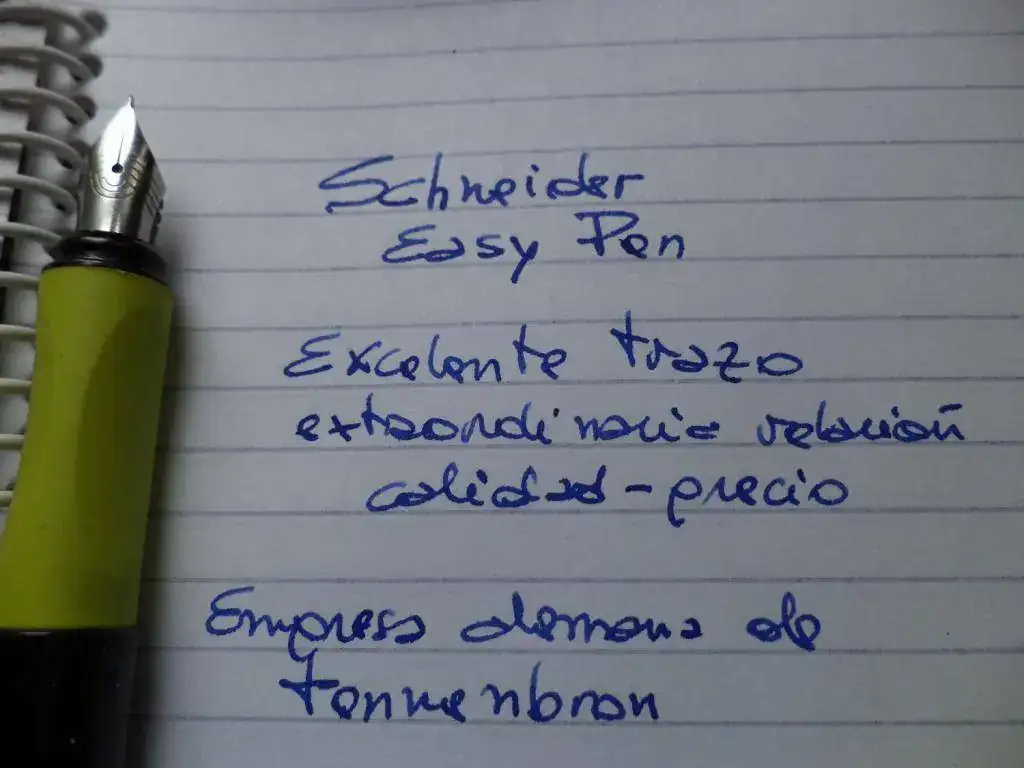 Schneider
Easy Pen
Excelente trazo
extraordinaria relación
calidad - precio
Empresa alemana de
Tennenbron